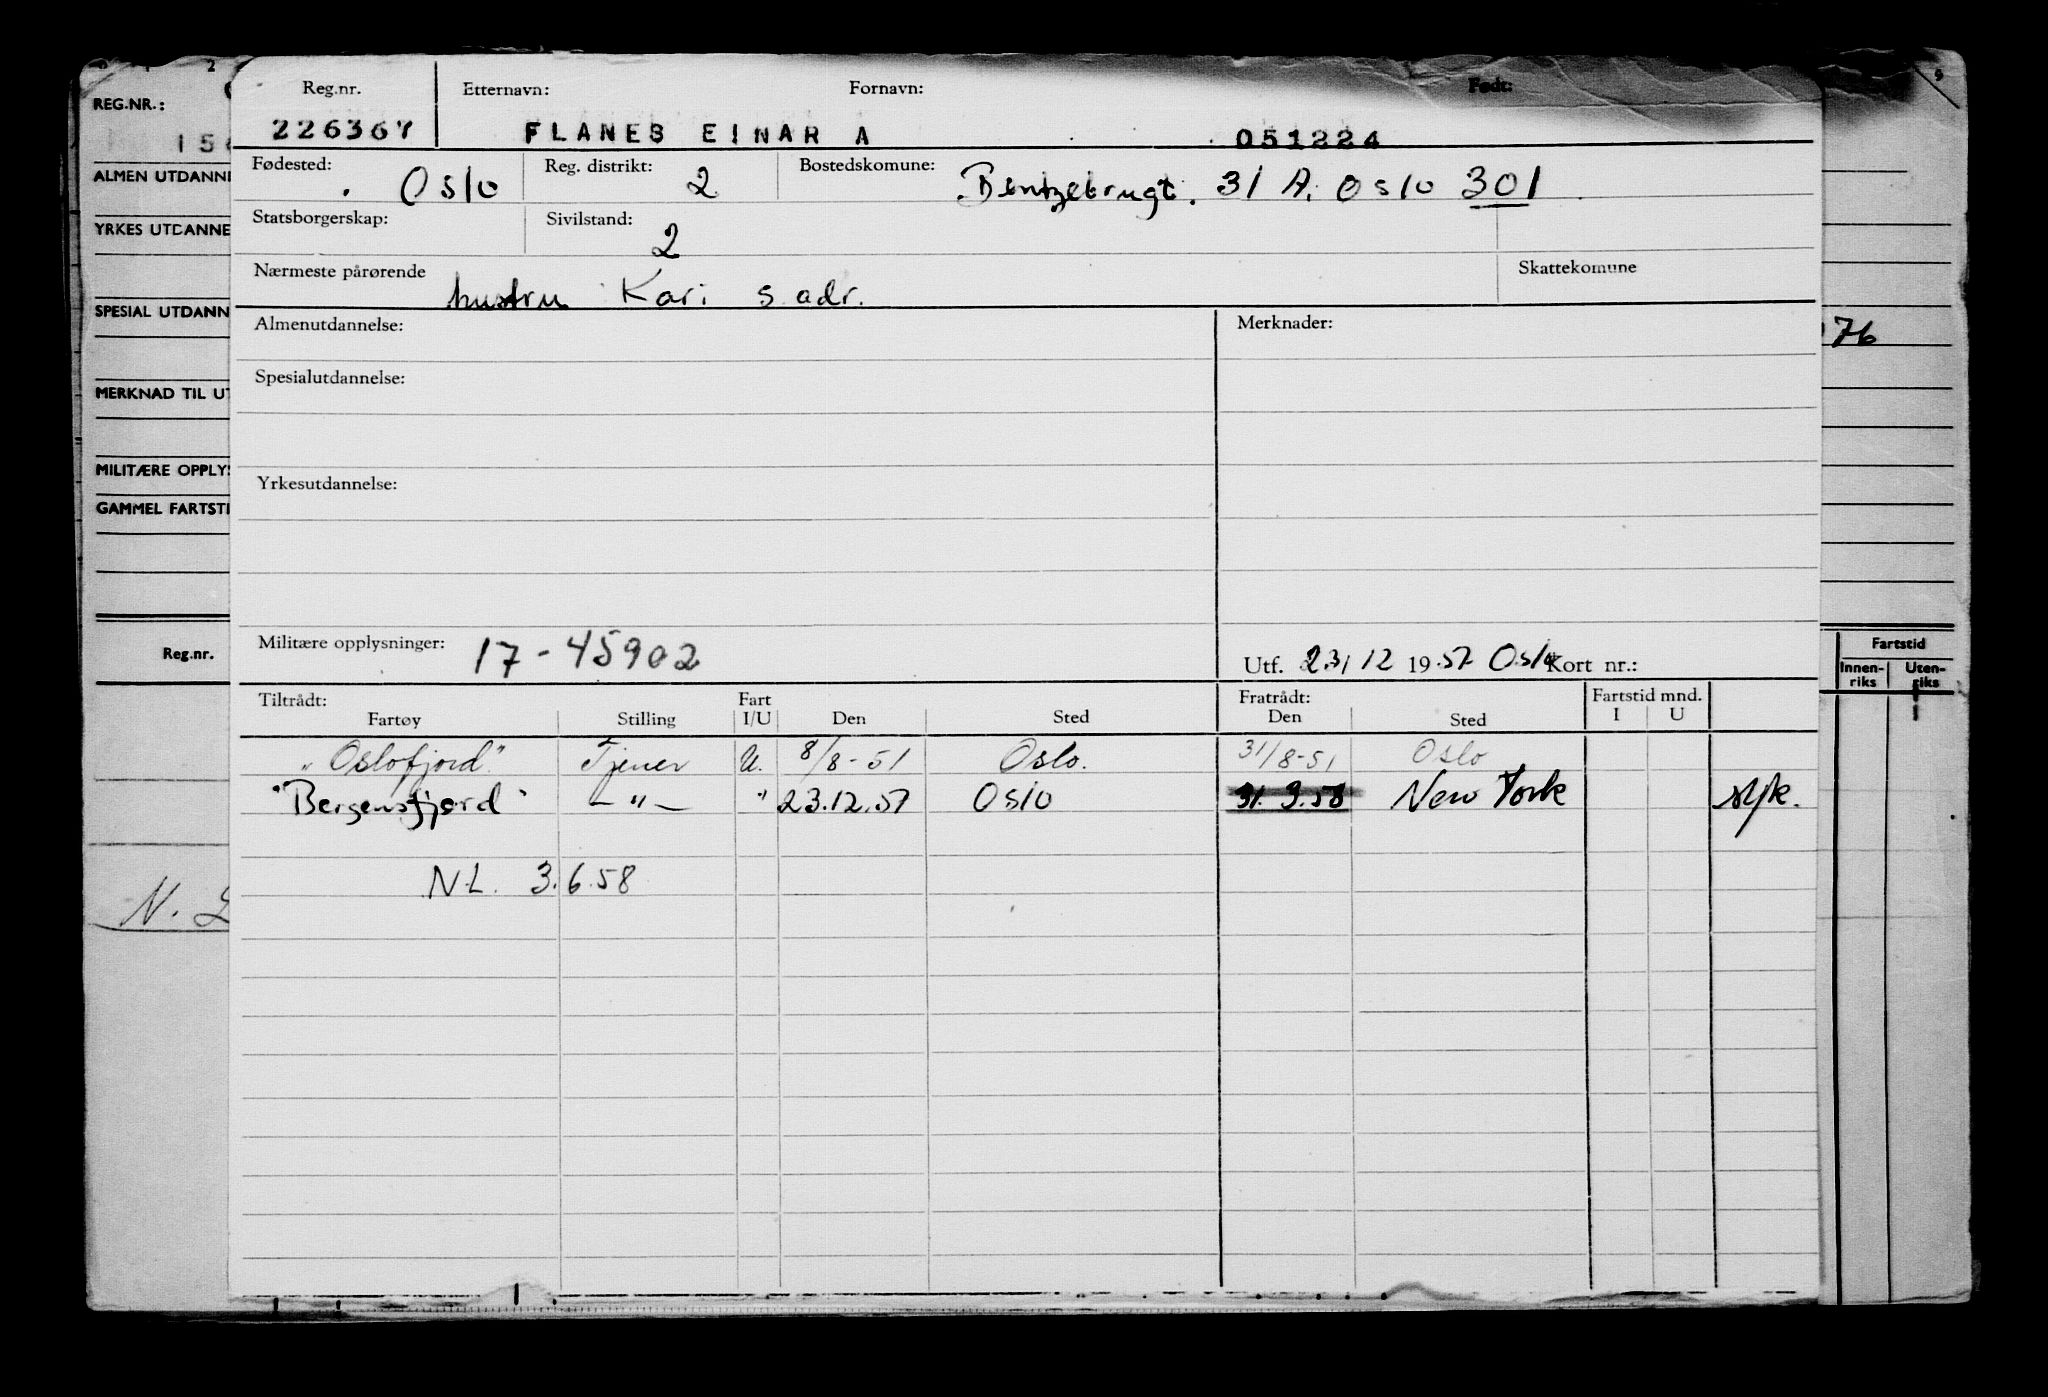 2
9
REG.NR.:
ALMEN UTDANNE
YRKES UTDANNE
SPESIAL UTDANN
MERKNAD TIL UT
MILITÆRE OPPLYS
GAMMEL FARTSTI
Reg.nr.
N.
Reg.nr. Etternavn: Fornavn: Født:
226367 FLANES EINAR A 051224
Fødested: Oslo Reg. distrikt: 2 Bostedskomune: Bentzebrugt. 31 A. Oslo 301
Statsborgerskap: Sivilstand: 2
Nærmeste pårørende hustru Kari s. adr. Skattekomune
Almenutdannelse: Merknader:
Spesialutdannelse:
Yrkesutdannelse:
Militære opplysninger: 17-45902 Utf. 23/12 1957 Oslo Kort nr.:
Tiltrådt: Fart Fratrådt: Fartstid mnd.
Fartøy Stilling I/U Den Sted Den Sted I U
"Oslofjord" Tjener U. 8/8-51 Oslo. 31/8-51 Oslo
"Bergensfjord" -"- " 23.12.57 Oslo 31.3.58 New York syk.
N.L. 3.6.58
76
Fartstid
Innen-riks Uten-riks